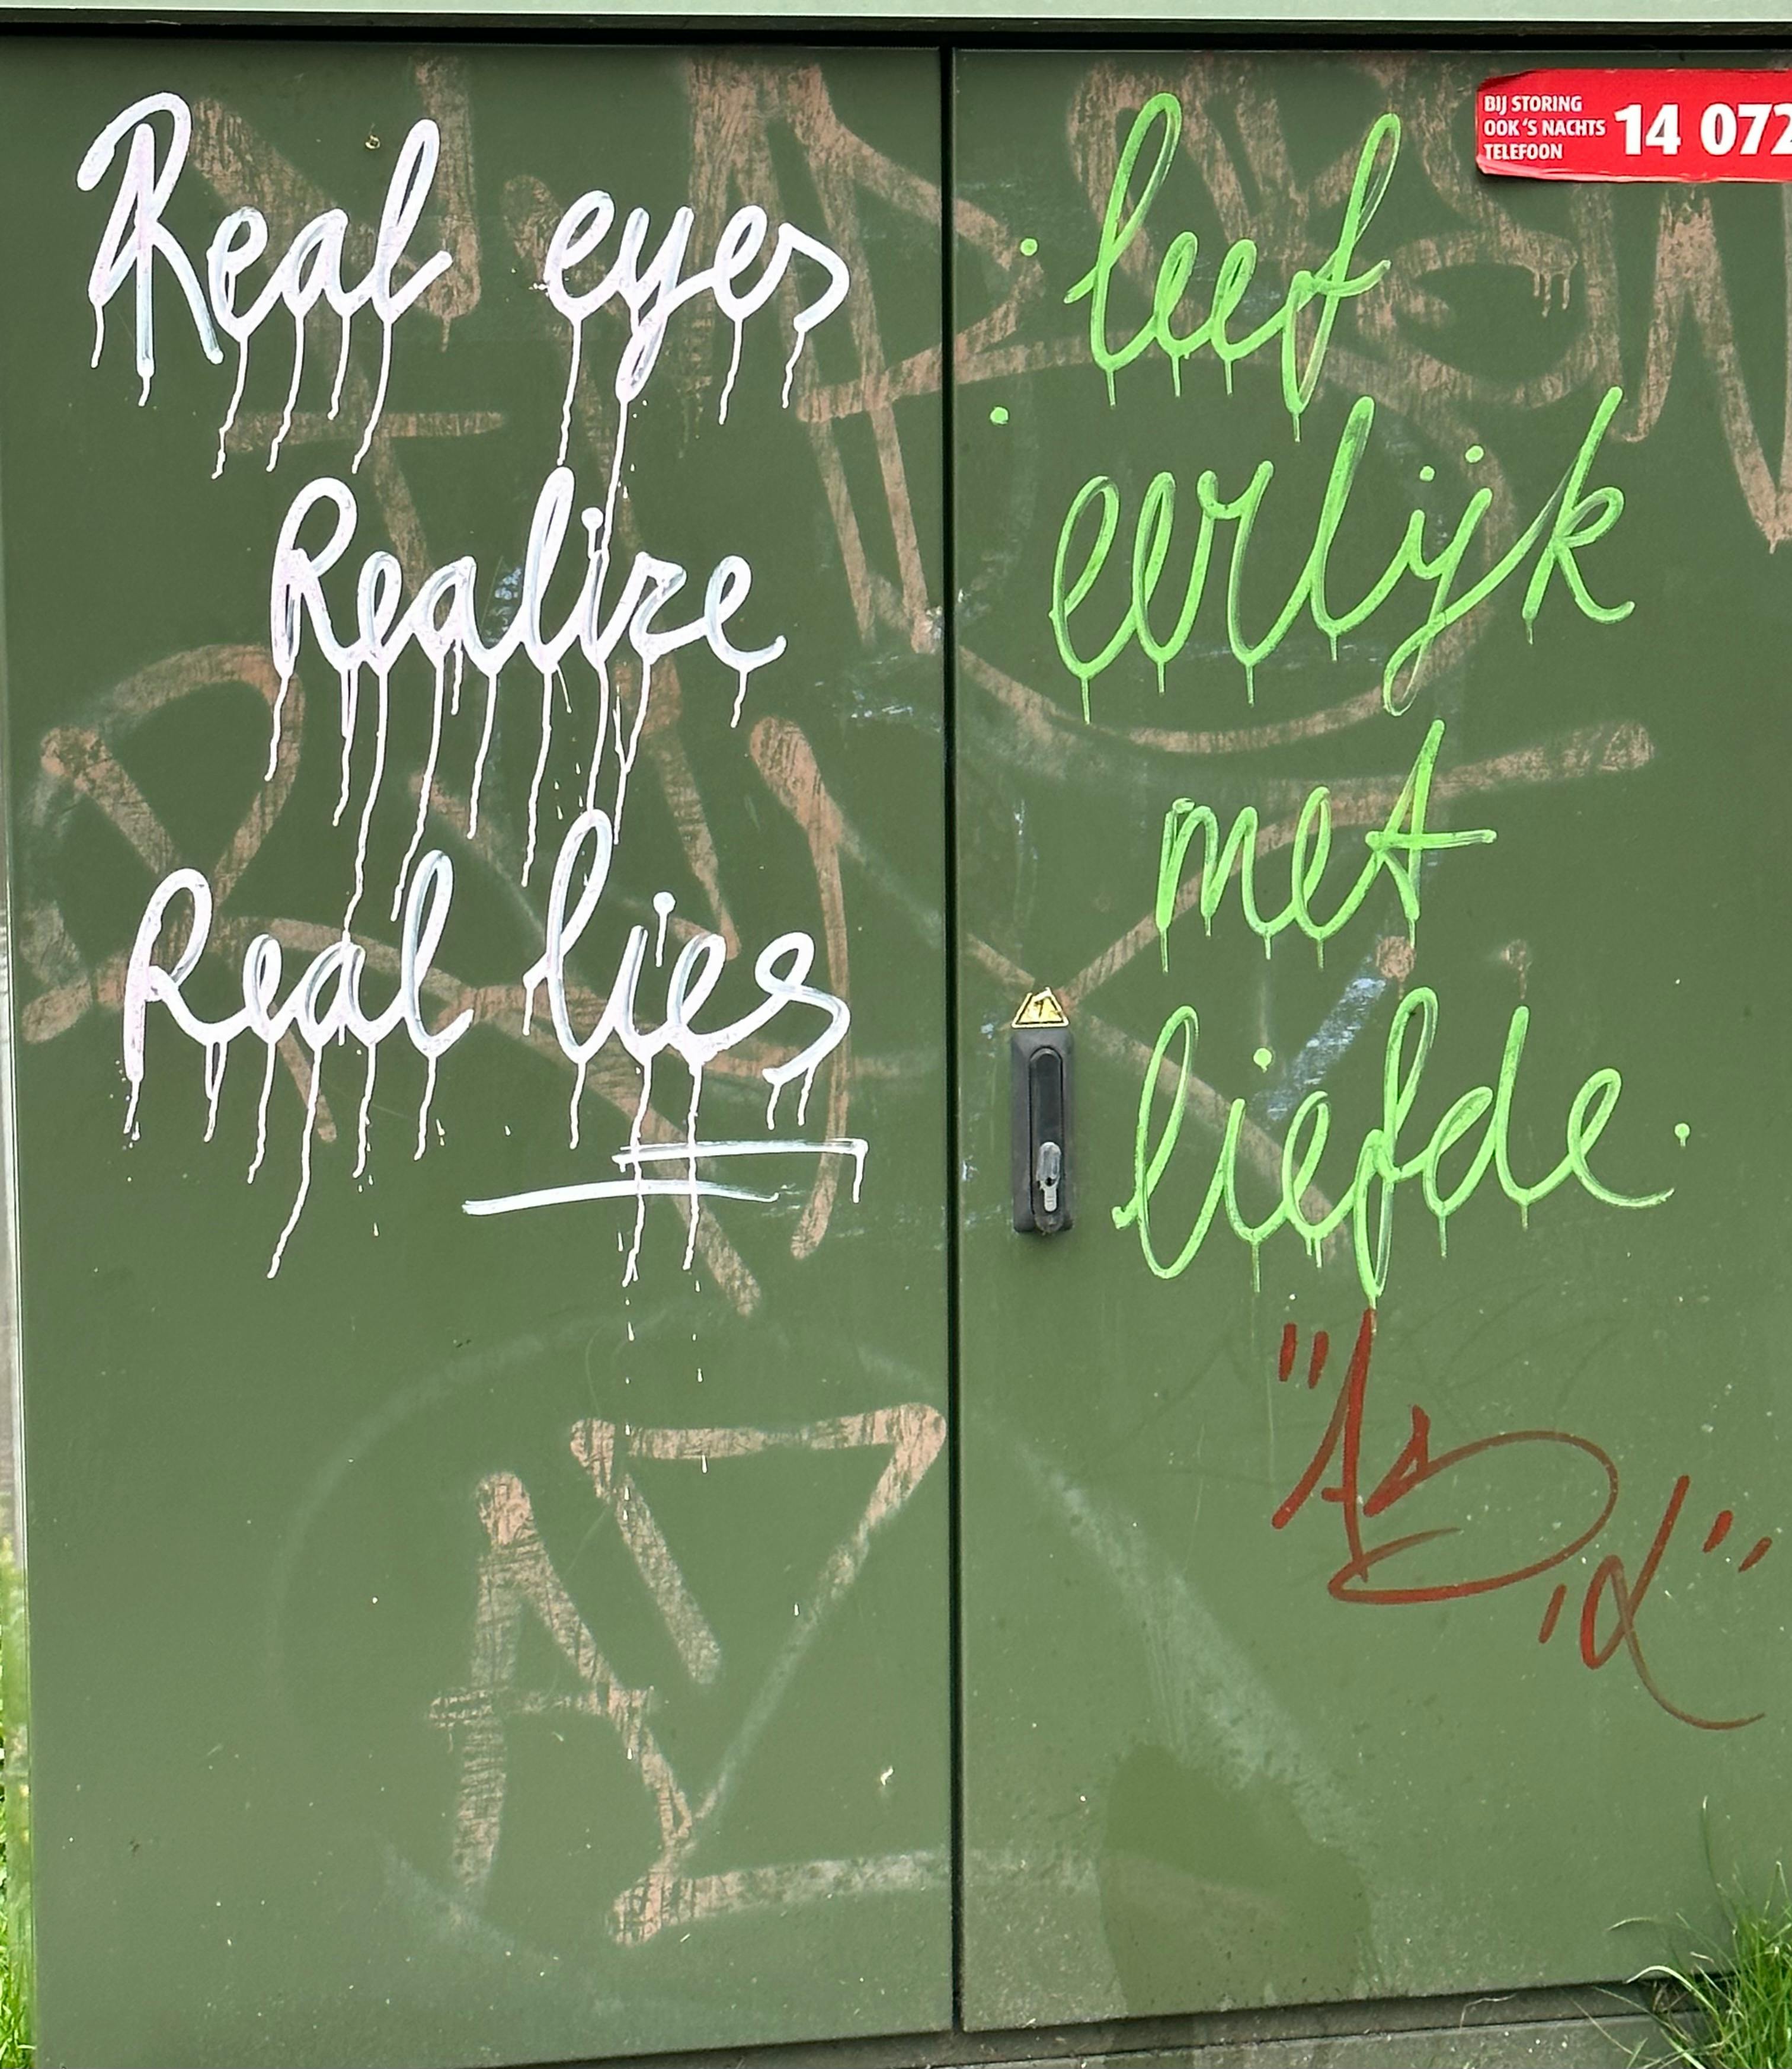 Real eyes
Realize
Real lies
leef
eerlijk
met
liefde.
BIJ STORING
OOK 'S NACHTS
TELEFOON
14 072